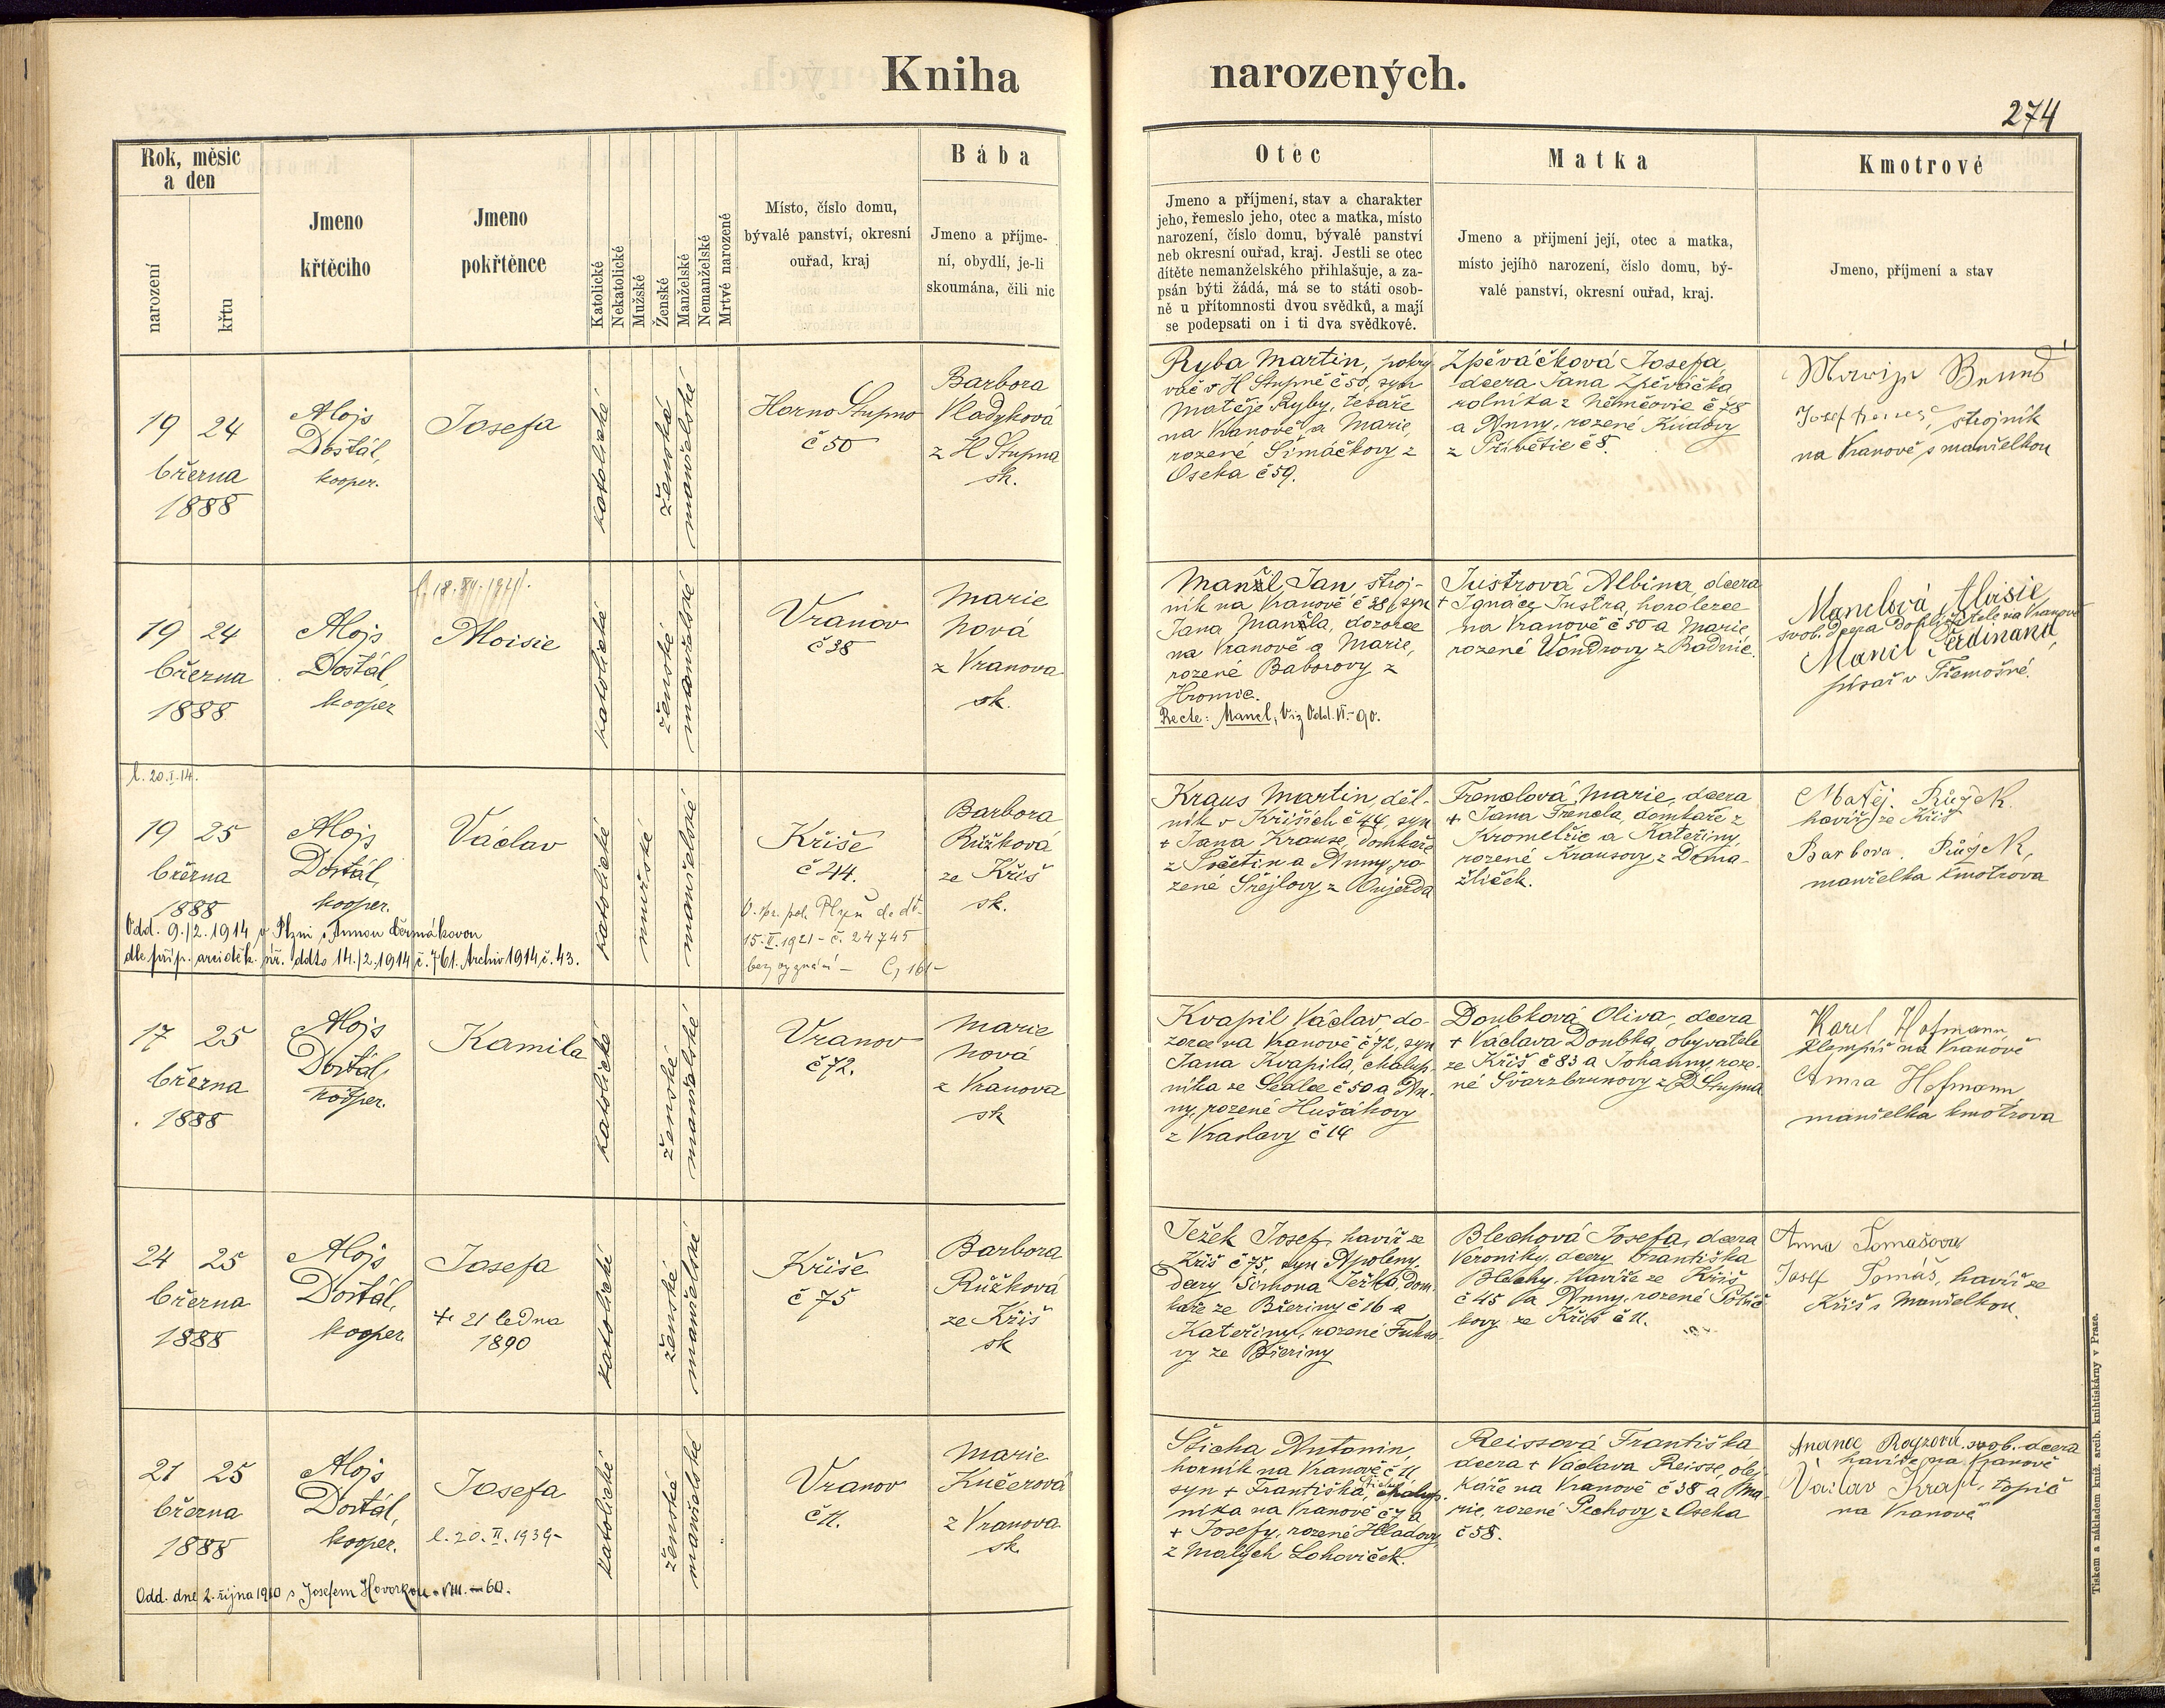 Kniha narozených.
274
Rok, měsíc
a den
narození
křtu
Jmeno
křtěcího
Jmeno
pokřtěnce
Katolické
Nekatolické
Mužské
Ženské
Manželské
Nemanželské
Mrtvě narozené
Místo, číslo domu,
bývalé panství, okresní
ouřad, kraj
Bába
Jmeno a příjme-
ní, obydlí, je-li
skoumána, čili nic
Otec
Jmeno a příjmení, stav a charakter
jeho, řemeslo jeho, otec a matka, místo
narození, číslo domu, bývalé panství
neb okresní ouřad, kraj. Jestli se otec
dítěte nemanželského přihlašuje, a za-
psán býti žádá, má se to státi osob-
ně u přítomnosti dvou svědků, a mají
se podepsati on i ti dva svědkové.
Matka
Jmeno a přijmení její, otec a matka,
místo jejího narození, číslo domu, bý-
valé panství, okresní ouřad, kraj.
Kmotrové
Jmeno, příjmení a stav
19 24
března
1888
Alojs
Dostál,
kooper.
Josefa
katolické
ženská
manželské
Horno Stupno
č 50
Barbora
Vladyková
z H Stupna
sk.
Ryba Martin, pokrý
vač v H Stupně č 50, syn
Matěje Ryby, tesaře
na Vranově a Marie,
rozené Šimáčkovy z
Oseka č 59.
Zpěváčková Josefa,
dcera Jana Zpěváčka
rolníka z Němčovic č 78
a Anny, rozené Kúdovy
z Přívětic č 8.
strojník
na Vranově s manželkou
19 24
března
1888
Alojs
Dostál,
kooper
Aloisie
katolické
ženské
manželské
Vranov
č 38
Marie
Nová
z Vranova
sk.
Jan, stroj-
ník na Vranově č 38, syn
Jana dozorce
na Vranově a Marie,
rozené Baborovy z
Hromic.
Recte: Mancl, Viz Odd. VI.-90.
Justrová Albína, dcera
+ Ignáce Justra,
na Vranově č 50 a Marie
rozené Vondrovy z Radnic.
Manclová Aloisie
svob. dcera dohližitele na Vranově
Mancl Ferdinand,
písař v Třemošné.
l. 20.I.14.
19 25
března
1888
Alojs
Dostál,
kooper.
Václav
katolické
mužské
manželské
Kříše
č 44.
15.II.1921 - č. 24745
bez vyznání -
Barbora
Růžková
ze Kříš
sk.
Odd. 9./2.1914 v Plzni s Annou Čermákovou
dle příp. arciděk. úř. ddto 14./2.1914 č. 761. Archiv 1914, č. 43.
Kraus Martin, děl-
ník v Kříších č 44, syn
+ Jana Krause, domkáře
z a Anny, ro-
zené Šrejlovy z Aujezda
Trenclová Marie, dcera
+ Jana Trencla, domkáře z
a Kateřiny,
rozené Krausovy z Doma-
žliček.
Matěj. Růžek.
havíř ze Kříš
Barbora. Růžek,
manželka kmotrova
17 25
března
1888
Alojs
Dostál,
kooper.
Kamila
katolická
ženské
manželské
Vranov
č 72.
Marie
Nová
z Vranova
sk
Kvapil Václav do-
zorce na Vranově č 72, syn
Jana Kvapila, chalup-
níka ze Sedlce č 50 a An-
ny, rozené Hušákovy
z Vraclavy č 14
Doubková Oliva, dcera
+ Václava Doubka, obyvatele
ze Kříš č 83 a Johanny, roze-
né Švarzbrunovy z D Stupna
Karel Hofmann
klempíř na Vranově
Anna Hofmann
manželka kmotrova
24 25
března
1888
Alojs
Dostál,
kooper.
Josefa
+ 21 ledna
1890
katolické
ženské
manželské
Kříše
č 75
Barbora
Růžková
ze Kříš
sk
Ježek Josef, havíř ze
Kříš č 75, syn Apoleny,
dcery Šimona Ježka, dom-
káře ze Březiny č 16 a
Kateřiny, rozené Fukso-
vy ze Březiny
Blechová Josefa, dcera
Veroniky, dcery Františka
Blechy, havíře ze Kříš
č 45 a Anny, rozené
ze Kříš č 11.
Anna Tomášova
Josef Tomáš, havíř ze
Kříš s manželkou.
21 25
března
1888
Alojs
Dostál,
kooper.
Josefa
l. 20. II. 1939-
katolické
ženská
manželské
Vranov
č 11.
Marie
Kučerová
z Vranova
sk.
Odd. dne 2. října 1910 s Josefem Hovorkou VIII. 60.
Šticha Antonín,
horník na Vranově č 11
syn + Františka, chalup-
níka na Vranově č 7 a
+ Josefy, rozené Hladovy
z Malých Lohoviček.
Reissová Františka
dcera + Václava Reisse,
káře na Vranově č 38 a Ma-
rie, rozené Pechovy z Oseka
č 58.
svob. dcera
havíře na Vranově
Václav topič
na Vranově
Tiskem a nákladem kníž. arcib. knihtiskárny v Praze.